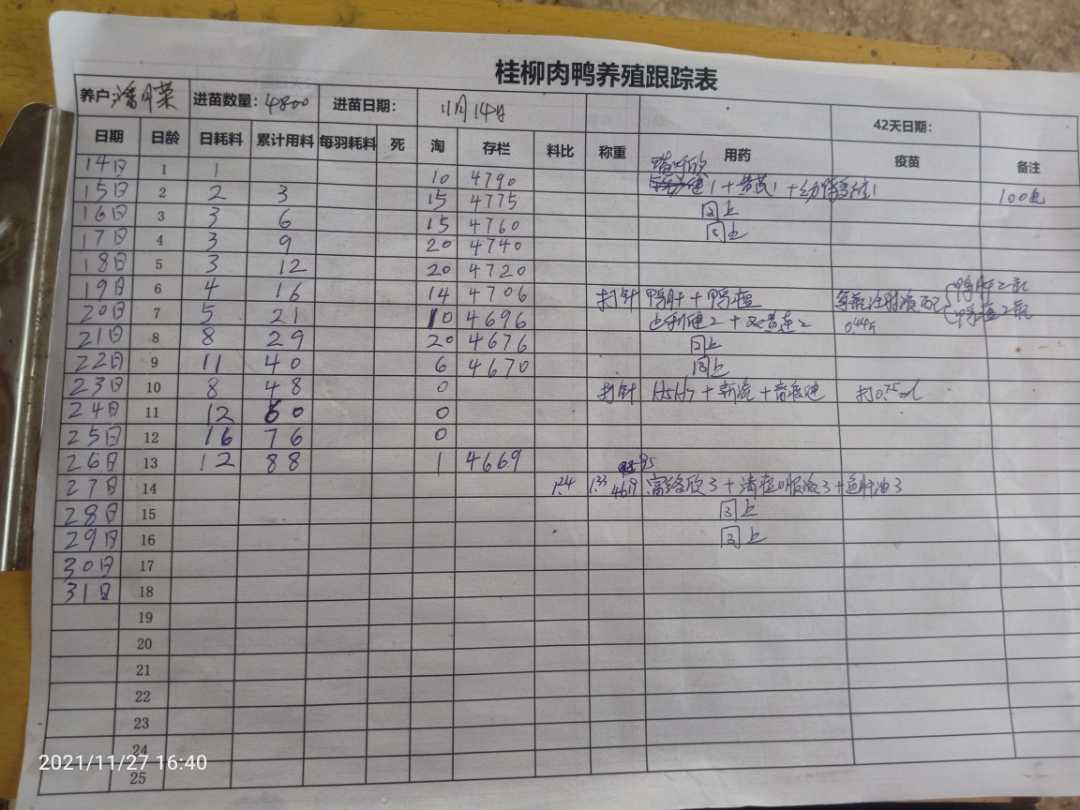 桂柳肉鸭养殖跟踪表
养户: 潘 荣 进苗数量: 4800 进苗日期: 11月14日 42天日期:
日期 日龄 日耗料 累计用料 每羽耗料 死 淘 存栏 料比 称重 用药 疫苗 备注
14日 1 1 10 4790
15日 2 2 3 15 4775 1+黄芪1+ 100包
16日 3 3 6 15 4760 同上
17日 4 3 9 20 4740 同上
18日 5 3 12 20 4720
19日 6 4 16 14 4706 打针 鸭肝+鸭瘟 每瓶注射液配 鸭肝2瓶
20日 7 5 21 10 4696 2+双黄连2 鸭瘟2瓶
21日 8 8 29 20 4676 同上
22日 9 11 40 6 4670 同上
23日 10 8 48 0 打针 H5H7+新流+ 打0.75ml
24日 11 12 60 0
25日 12 16 76 0
26日 13 12 88 1 4669
27日 14 1.24 1.33 4619 3+清瘟口服液3+鱼肝油3
28日 15 同上
29日 16 同上
30日 17
31日 18
19
20
21
22
23
24
25
2021/11/27 16:40